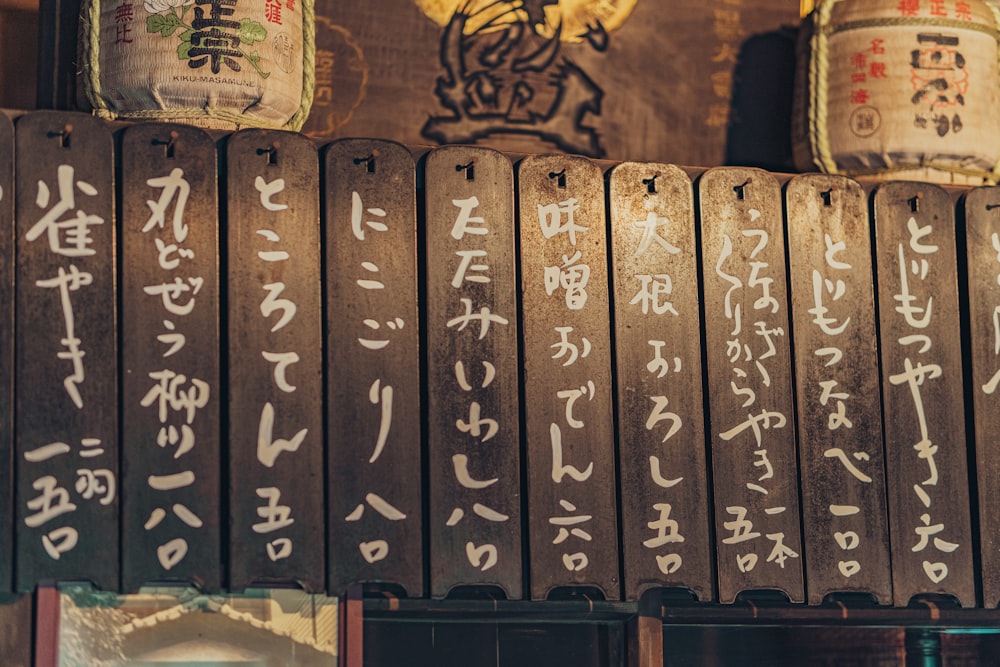 KIKU-MASAMUNE
正宗
とりもつやき 六〇
とりもつなべ 一〇〇
うなぎくりからやき 二本 五〇
大根おろし 五〇
味噌おでん 六〇
たたみいわし 八〇
にこごり 八〇
ところてん 五〇
丸どぜう柳川 一八〇
雀やき 二羽 一五〇